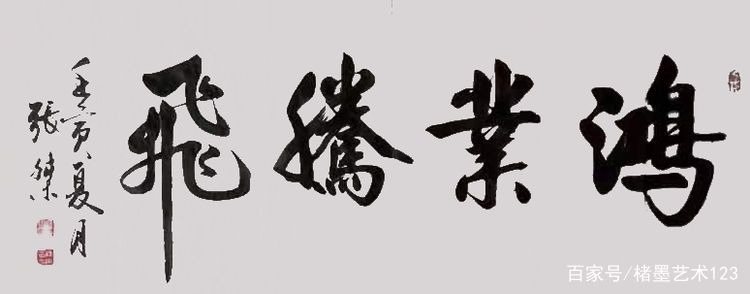 鸿業騰飛
壬寅夏月
張傑
百家号/楮墨艺术123